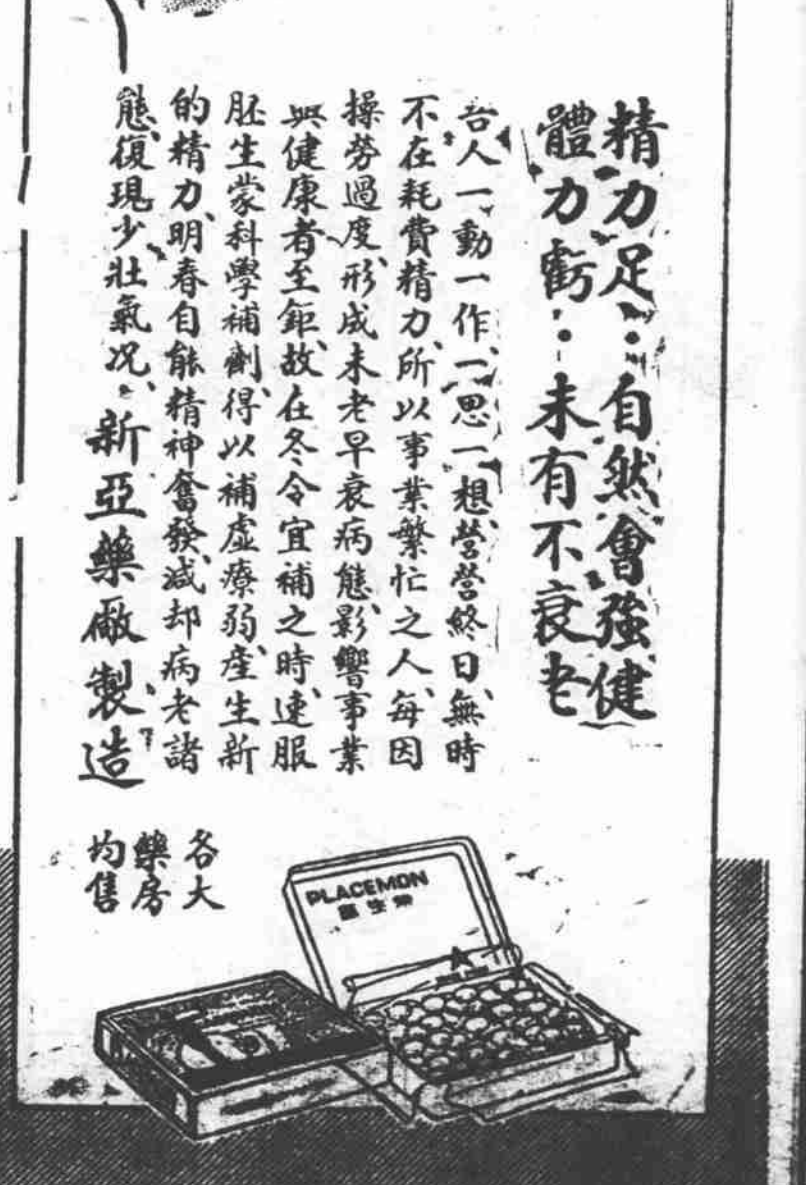 精力足：自然會強健
體力虧：未有不衰老
吾人一動一作、一思一想、營營終日、無時
不在耗費精力、所以事業繁忙之人、每因
操勞過度、形成未老早衰病態、影響事業
與健康者至鉅、故在冬令宜補之時、速服
胚生蒙科學補劑、得以補虛療弱、產生新
的精力、明春自能精神奮發、減却病老諸
態、復現少壯氣况、新亞藥廠製造
各大
藥房
均售
PLACEMON
生